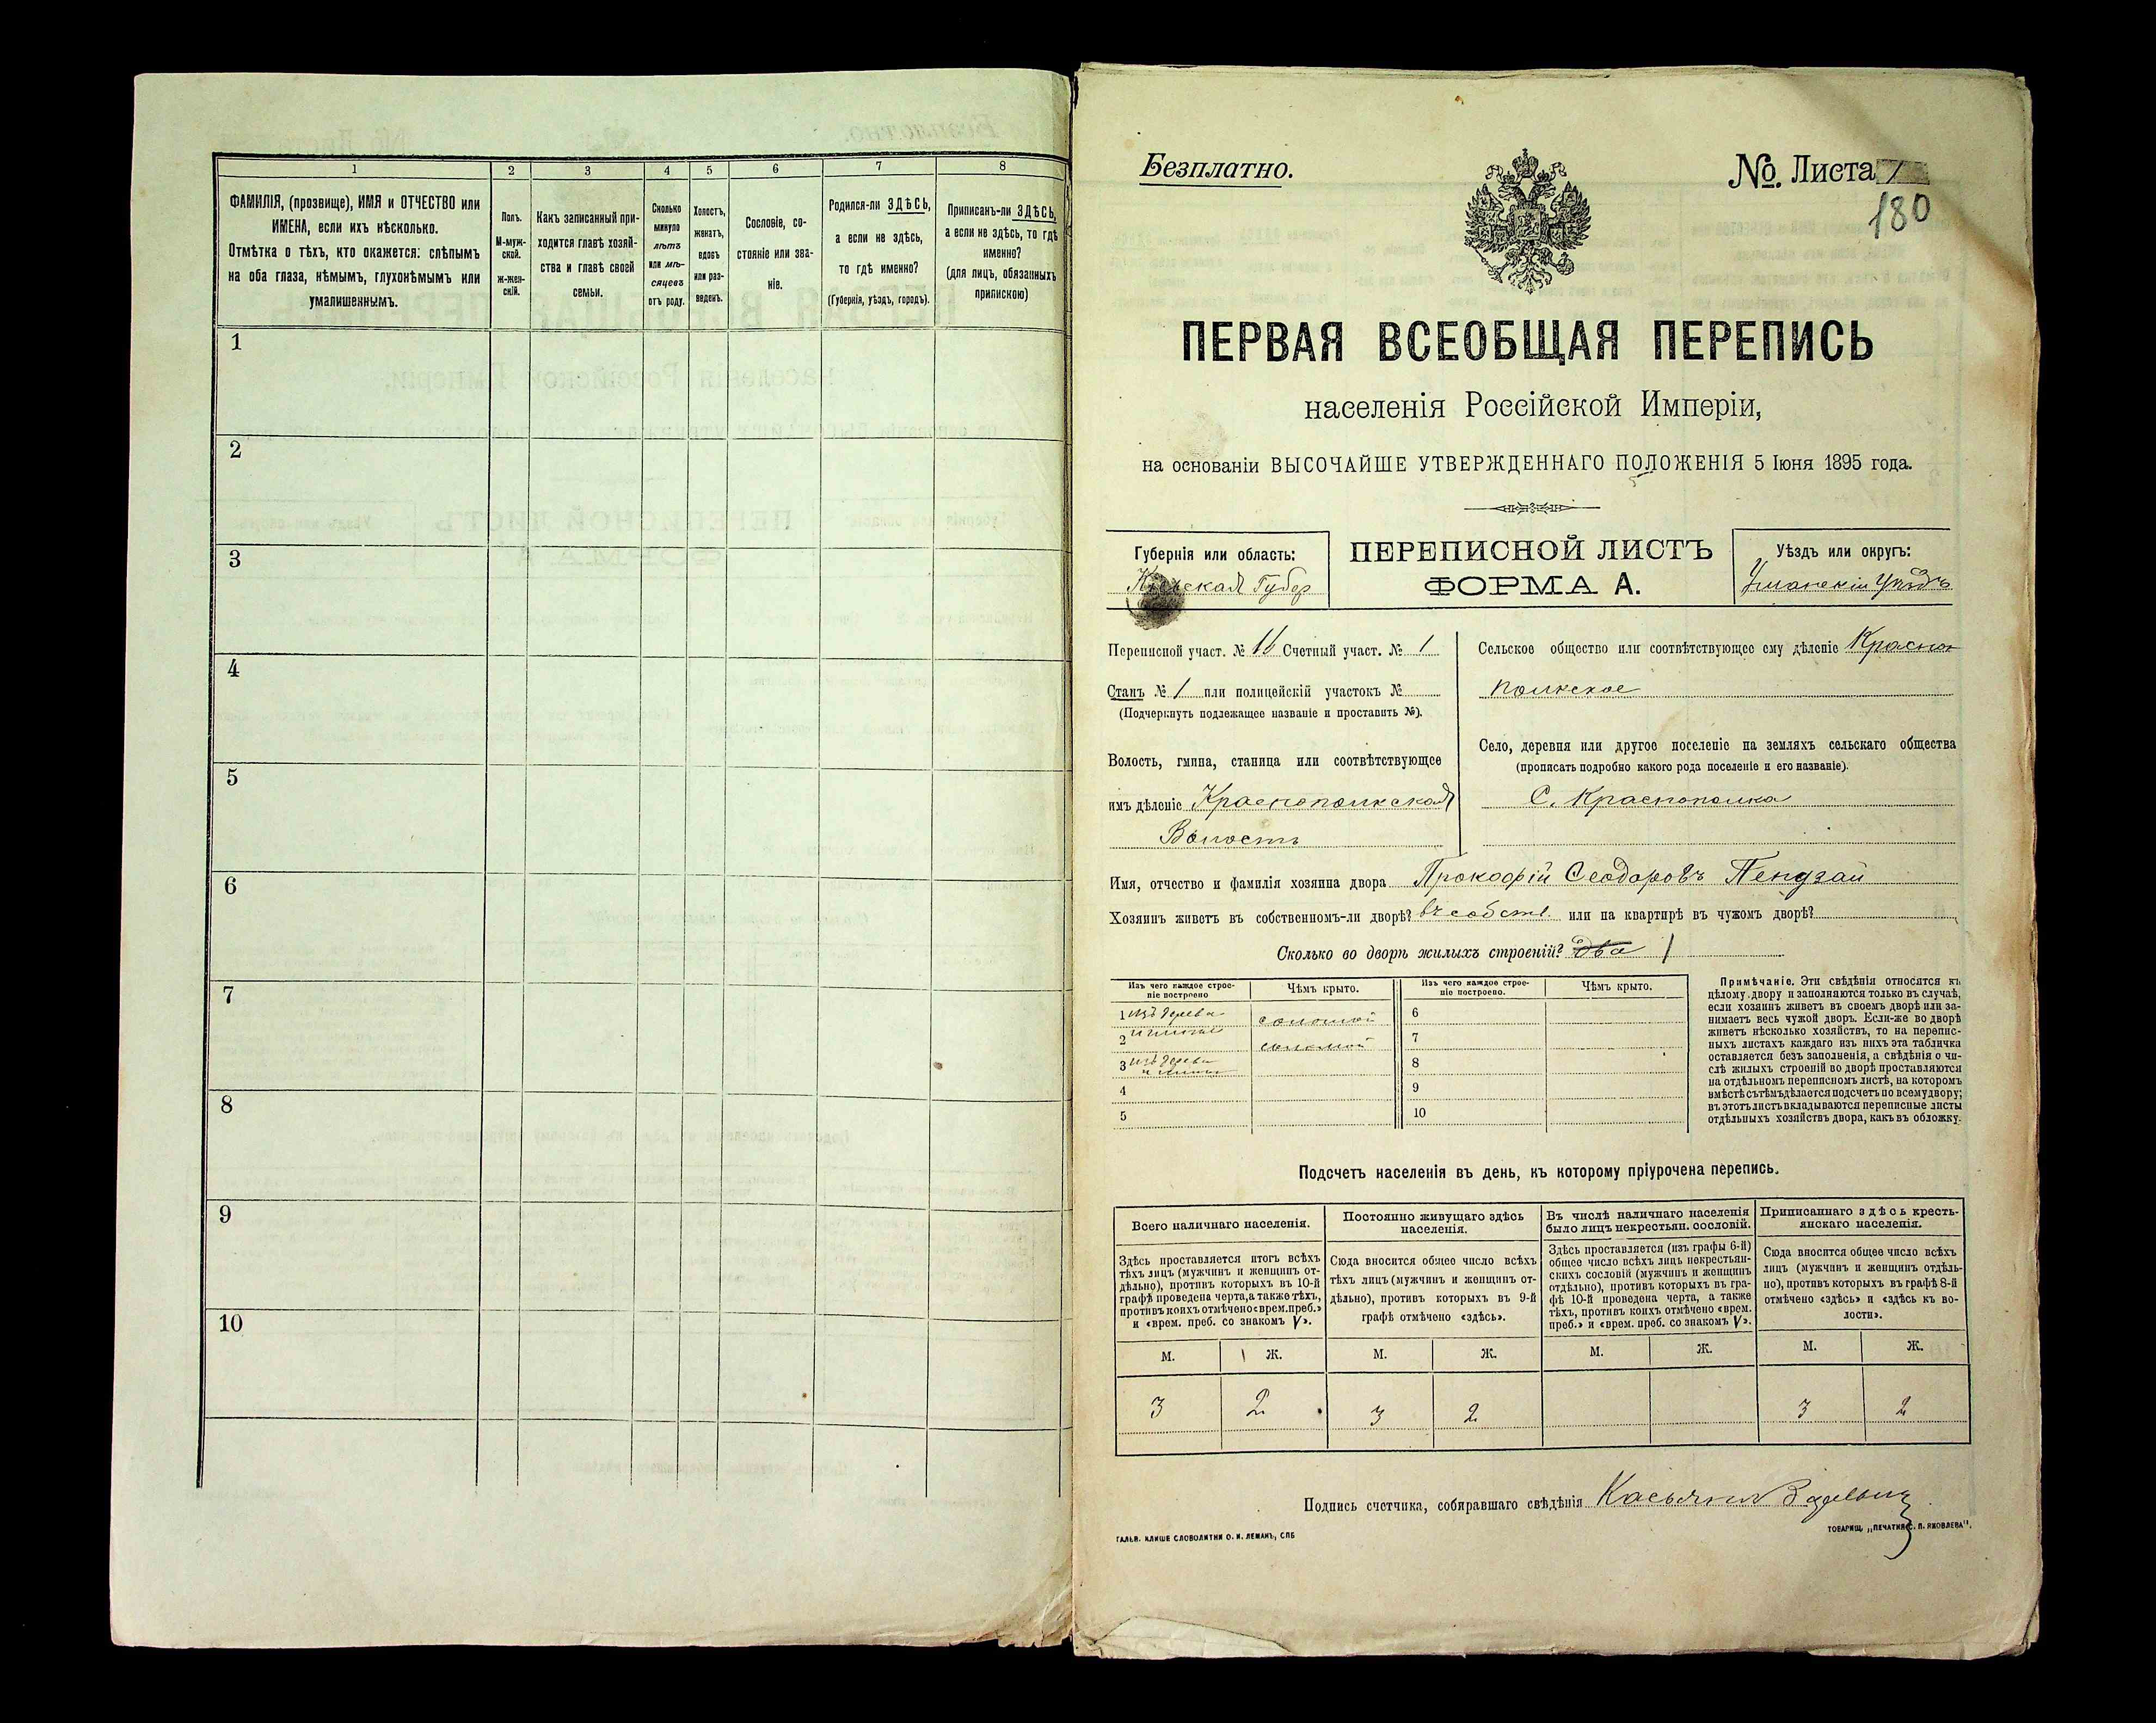 1
2
3
4
5
6
7
8
ФАМИЛІЯ, (прозвище), ИМЯ и ОТЧЕСТВО или
ИМЕНА, если ихъ нѣсколько.
Отмѣтка о тѣхъ, кто окажется: слѣпымъ
на оба глаза, нѣмымъ, глухонѣмымъ или
умалишеннымъ.
Полъ.
М-муж-
ской.
Ж-жен-
скій.
Какъ записанный при-
ходится главѣ хозяй-
ства и главѣ своей
семьи.
Сколько
минуло
лѣтъ
или мѣ-
сяцевъ
отъ роду.
Холостъ,
женатъ,
вдовъ
или раз-
веденъ.
Сословіе, со-
стояніе или зва-
ніе.
Родился-ли ЗДѢСЬ,
а если не здѣсь,
то гдѣ именно?
(Губернія, уѣздъ, городъ).
Приписанъ-ли ЗДѢСЬ,
а если не здѣсь, то гдѣ
именно?
(для лицъ, обязанныхъ
припискою)
1
2
3
4
5
6
7
8
9
10
Безплатно.
№. Листа
180
ПЕРВАЯ ВСЕОБЩАЯ ПЕРЕПИСЬ
населенія Россійской Имперіи,
на основаніи ВЫСОЧАЙШЕ УТВЕРЖДЕННАГО ПОЛОЖЕНІЯ 5 Іюня 1895 года.
Губернія или область:
Кіевская Губер
ПЕРЕПИСНОЙ ЛИСТЪ
ФОРМА А.
Уѣздъ или округъ:
Уманскій Уѣздъ
Переписной участ. № 16 Счетный участ. № 1
Станъ № 1 или полицейскій участокъ №
(Подчеркнуть подлежащее названіе и проставить №).
Волость, гмина, станица или соотвѣтствующее
имъ дѣленіе Краснополкская
Волость
Сельское общество или соотвѣтствующее ему дѣленіе Красно
полкское
Село, деревня или другое поселеніе на земляхъ сельскаго общества
(прописать подробно какого рода поселеніе и его названіе).
С. Краснополка
Имя, отчество и фамилія хозяина двора Прокофій Ѳеодоровъ Пендзай
Хозяинъ живетъ въ собственномъ-ли дворѣ? въ собств. или на квартирѣ въ чужомъ дворѣ?
Сколько во дворѣ жилыхъ строеній? два 1
Изъ чего каждое строе-
ніе построено
Чѣмъ крыто.
Изъ чего каждое строе-
ніе построено.
Чѣмъ крыто.
1 изъ дерева
и глины
соломой
2
соломой
3 изъ дерева
и глины
4
5
6
7
8
9
10
Примѣчаніе. Эти свѣдѣнія относятся къ
цѣлому двору и заполняются только въ случаѣ,
если хозяинъ живетъ въ своемъ дворѣ или за-
нимаетъ весь чужой дворъ. Если-же во дворѣ
живетъ нѣсколько хозяйствъ, то на перепис-
ныхъ листахъ каждаго изъ нихъ эта табличка
оставляется безъ заполненія, а свѣдѣнія о чи-
слѣ жилыхъ строеній во дворѣ проставляются
на отдѣльномъ переписномъ листѣ, на которомъ
вмѣстѣ съ тѣмъ дѣлается подсчетъ по всему двору;
въ этотъ листъ вкладываются переписные листы
отдѣльныхъ хозяйствъ двора, какъ въ обложку.
Подсчетъ населенія въ день, къ которому пріурочена перепись.
Всего наличнаго населенія.
Постоянно живущаго здѣсь
населенія.
Въ числѣ наличнаго населенія
было лицъ некрестьян. сословій.
Приписаннаго здѣсь кресть-
янскаго населенія.
Здѣсь проставляется итогъ всѣхъ
тѣхъ лицъ (мужчинъ и женщинъ от-
дѣльно), противъ которыхъ въ 10-й
графѣ проведена черта, а также тѣхъ,
противъ коихъ отмѣчено «врем. преб.»
и «врем. преб. со знакомъ V».
Сюда вносится общее число всѣхъ
тѣхъ лицъ (мужчинъ и женщинъ от-
дѣльно), противъ которыхъ въ 9-й
графѣ отмѣчено «здѣсь».
Здѣсь проставляется (изъ графы 6-й)
общее число всѣхъ лицъ некрестьян-
скихъ сословій (мужчинъ и женщинъ
отдѣльно), противъ которыхъ въ гра-
фѣ 10-й проведена черта, а также
тѣхъ, противъ коихъ отмѣчено «врем.
преб.» и «врем. преб. со знакомъ V».
Сюда вносится общее число всѣхъ
лицъ (мужчинъ и женщинъ отдѣль-
но), противъ которыхъ въ графѣ 8-й
отмѣчено «здѣсь» и «здѣсь къ во-
лости».
М.
Ж.
М.
Ж.
М.
Ж.
М.
Ж.
3
2
3
2
3
2
Подпись счетчика, собиравшаго свѣдѣнія
ГАЛЬВ. КЛИШЕ СЛОВОЛИТНИ О. И. ЛЕМАНЪ, СПБ
ТОВАРИЩ. „ПЕЧАТНЯ С. П. ЯКОВЛЕВА".